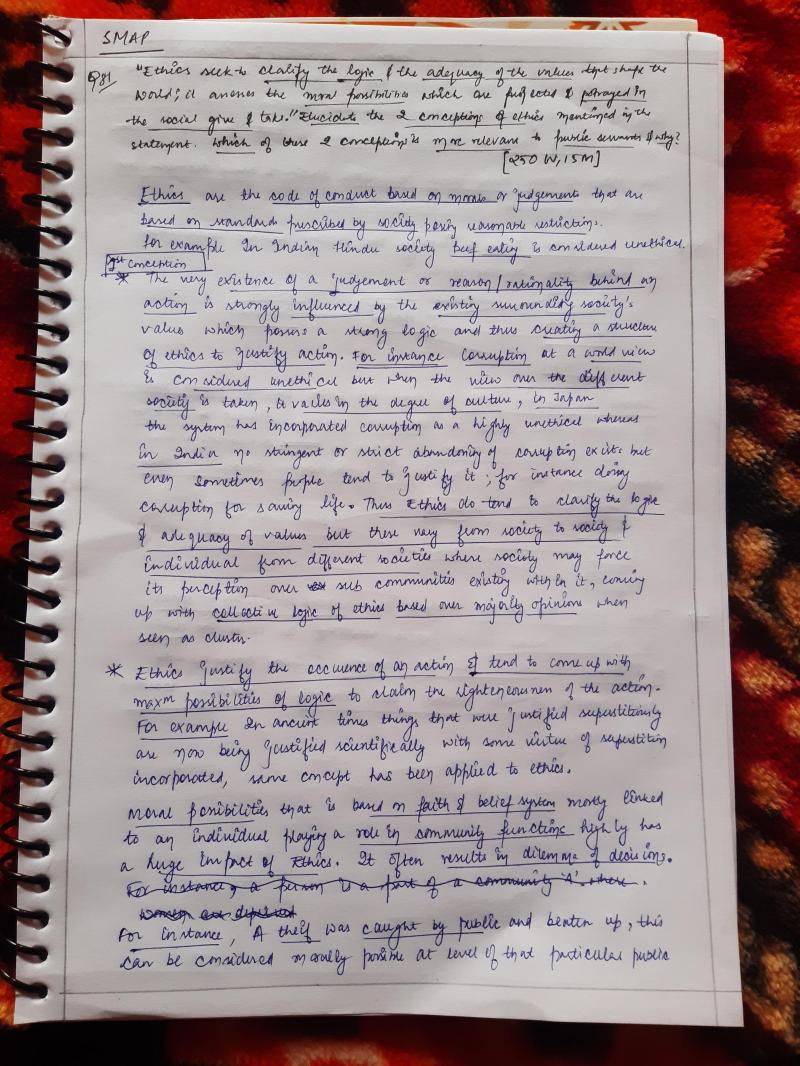 SMAP
Q81 "Ethics seek to clarify the logic & the adequacy of the values that shape the
world; it assesses the moral possibilities which are projected & potrayed in
the social give & take." Elucidate the 2 conceptions of ethics mentioned in the
statement. Which of these 2 conceptions is more relevant to public servants & why?
[250 W, 15M]
Ethics are the code of conduct based on morals or judgements that are
based on standards prescribed by society posing reasonable restrictions.
for example In Indian Hindu society beef eating is considered unethical.
1st Conception
* The very existence of a judgement or reason/rationality behind an
action is strongly influenced by the existing surrounding society's
values which possess a strong logic and thus creating a structure
of ethics to justify action. For instance Corruption at a world view
is considered unethical but when the view over the different
society is taken, it varies in the degree of culture, in Japan
the system has incorporated corruption as a highly unethical whereas
in India no stringent or strict abandoning of corruption exists but
even sometimes people tend to justify it; for instance doing
corruption for saving life. Thus Ethics do tend to clarify the logic
& adequacy of values but these vary from society to society &
individual from different societies where society may force
its perception over sub communities existing within it, coming
up with collective logic of ethics based over majority opinions when
seen as cluster.
* Ethics justify the occurence of an action & tend to come up with
maxm possibilities of logic to claim the righteneousness of the action.
For example In ancient times things that were justified superstitiously
are now being justified scientifically with some virtue of superstition
incorporated, same concept has been applied to ethics.
Moral possibilities that is based on faith & belief system mostly linked
to an individual playing a role in community functions highly has
a huge impact of Ethics. It often results in dilemma of decisions.
For instance, a person is a part of a community 'A' where
women are deprived
For instance, A theif was caught by public and beaten up, this
can be considered morally possible at level of that particular public